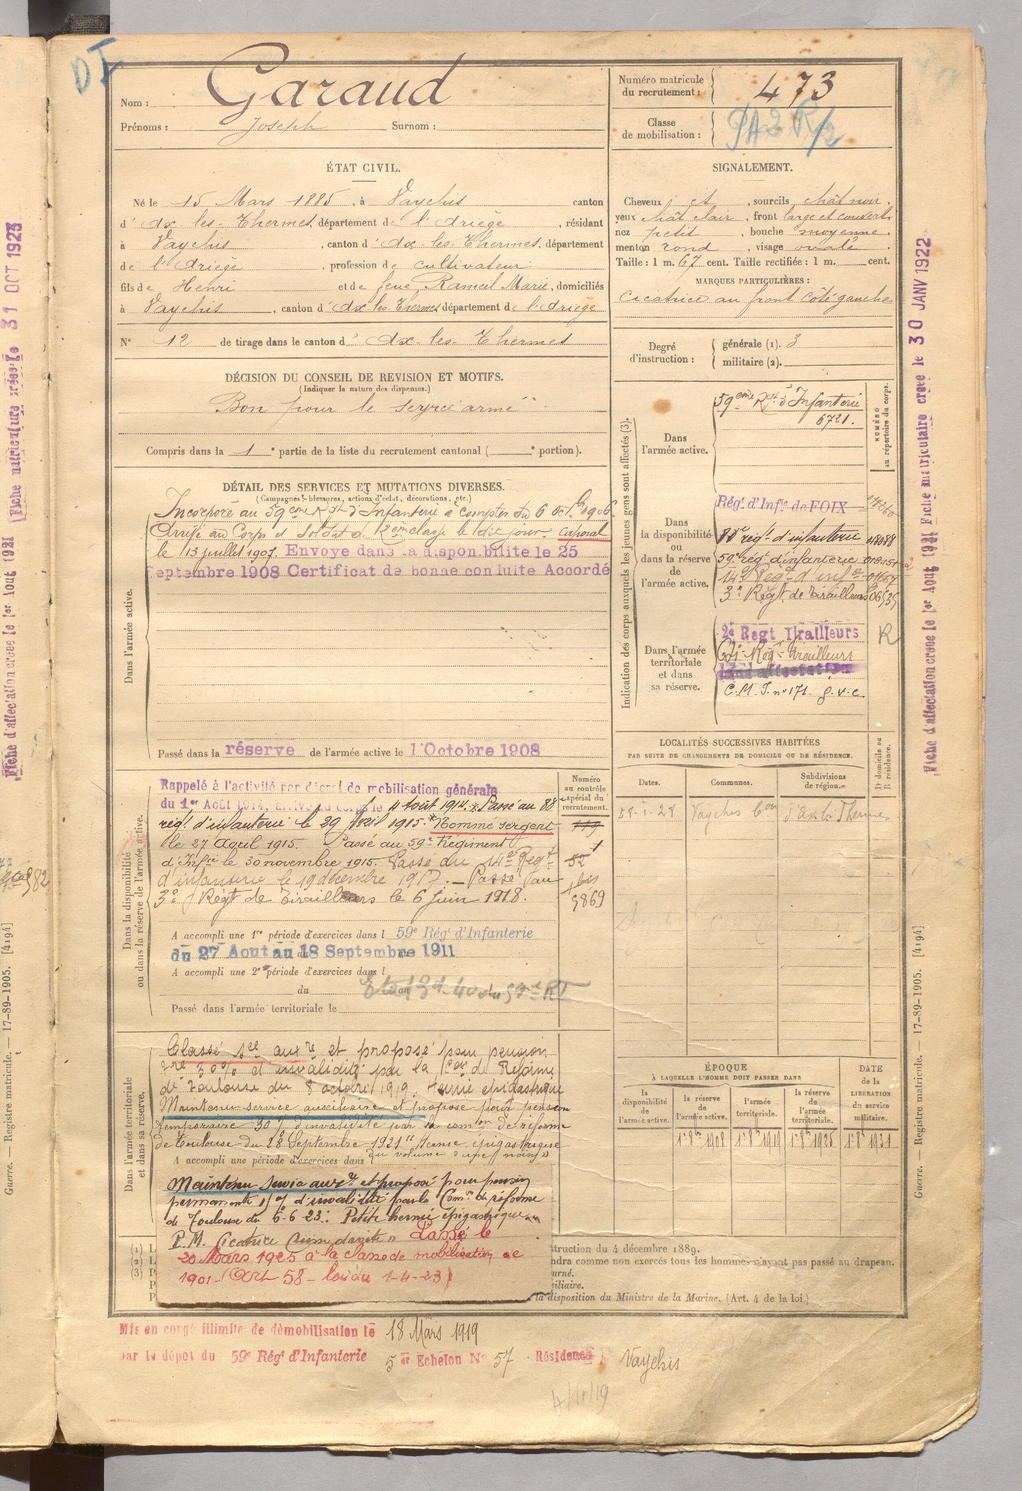 Garaud
Nom :
Prénoms : Joseph Surnom :
Numéro matricule du recrutement : 473
Classe de mobilisation :
ÉTAT CIVIL.
Né le 15 Mars 1885, à Vaychis canton
d'Ax-les-Thermes, département de l'Ariège, résidant
à Vaychis, canton d'Ax-les-Thermes, département
de l'Ariège, profession de cultivateur
fils de Henri et de feue Rameil Marie, domiciliés
à Vaychis, canton d'Ax-les-Thermes département de l'Ariège
N° 12 de tirage dans le canton d'Ax-les-Thermes
SIGNALEMENT.
Cheveux et, sourcils chât noir
yeux chât clair, front large et couvert
nez petit, bouche moyenne
menton rond, visage ovale
Taille : 1 m. 67 cent. Taille rectifiée : 1 m. cent.
MARQUES PARTICULIÈRES :
Cicatrice au front côté gauche
Degré d'instruction : générale (1). 3
militaire (2).
DÉCISION DU CONSEIL DE REVISION ET MOTIFS.
(Indiquer la nature des dispenses.)
Bon pour le service armé
Compris dans la 1e partie de la liste du recrutement cantonal ( e portion).
DÉTAIL DES SERVICES ET MUTATIONS DIVERSES.
(Campagnes, blessures, actions d'éclat, décorations, etc.)
Dans l'armée active.
Incorporé au 59ème Rgt d'Infanterie à compter du 6 1906
Arrivé au Corps et soldat de 2ème classe le dit jour. Caporal
le 13 juillet 1907. Envoyé dans la disponibilité le 25
Septembre 1908 Certificat de bonne conduite Accordé
Passé dans la réserve de l'armée active le 1 Octobre 1908
Indication des corps auxquels les jeunes gens sont affectés (3).
NUMÉRO au répertoire du corps.
Dans l'armée active.
59ème Rgt d'Infanterie
6721.
Dans la disponibilité ou dans la réserve de l'armée active.
Rég. d'Infie de FOIX
88e régt d'infanterie
59e régt d'infanterie
14e Régt d'inf
3e Régt de Tirailleurs
Dans l'armée territoriale et dans sa réserve.
2e Regt Tirailleurs
R
C.M.I. n° 171 g.v.c.
LOCALITÉS SUCCESSIVES HABITÉES
PAR SUITE DE CHANGEMENTS DE DOMICILE OU DE RÉSIDENCE.
Dates. Communes. Subdivisions de région. D domicile ou R résidence.
Vaychis Con d'Ax les Thermes
Dans la disponibilité ou dans la réserve de l'armée active.
Numéro au contrôle spécial du recrutement.
Rappelé à l'activité par décret de mobilisation générale
du 1er Août 1914, arrivé au corps le 4 août 1914. Passé au 88
régt d'infanterie le 29 Avril 1915. Nommé sergent
le 27 Avril 1915. Passé au 59e Régiment
d'Infie le 30 novembre 1915. Passé du 14e Régt
d'infanterie le 19 décembre 1917. Passé au
3e Régt de Tirailleurs le 6 juin 1918.
A accompli une 1re période d'exercices dans l 59e Rég' d'Infanterie
du 27 Aout au 18 Septembre 1911
A accompli une 2e période d'exercices dans l
du
Passé dans l'armée territoriale le
Dans l'armée territoriale et dans sa réserve.
Classé sce auxre et proposé pour pension
30% d'invalidité par la Con de Réforme
de Toulouse du 8 octobre 1919. Hernie épigastrique
Maintenu service auxiliaire et proposé pour pension
temporaire 30% d'invalidité par la comon de réforme
de Toulouse du 28 Septembre 1921 "Hernie épigastrique
A accompli une période d'exercices dans
Maintenu service auxre et proposé pour pension
permanente d'invalidité par la Comon de réforme
de Toulouse du 6-6-23 : Petite hernie épigastrique
P.M. Cicatrice droite "Passé le
20 Mars 1925 à la classe de mobilisation de
1901 (Art 58 - loi du 1-4-23)
ÉPOQUE
À LAQUELLE L'HOMME DOIT PASSER DANS
DATE de la LIBÉRATION du service militaire.
la disponibilité de l'armée active.
la réserve de l'armée active.
l'armée territoriale.
la réserve de l'armée territoriale.
struction du 4 décembre 1889.
ndra comme non exercés tous les hommes n'ayant pas passé au drapeau.
urné.
iliaire.
la disposition du Ministre de la Marine. (Art. 4 de la loi.)
Mis en congé illimité de démobilisation le 18 Mars 1919
par le dépôt du 59e Rég' d'Infanterie 5 er Echelon N° 57 Résidence : Vaychis
Fiche d'affectation créée le 1er Aout 1921 Fiche matriculaire créée le 31 OCT 1923
Fiche d'affectation créée le 1er Aout 1921 Fiche matriculaire créée le 30 JANV 1922
Guerre. — Registre matricule. — 17-89-1905. [4194]
Guerre. — Registre matricule. — 17-89-1905. [4194]